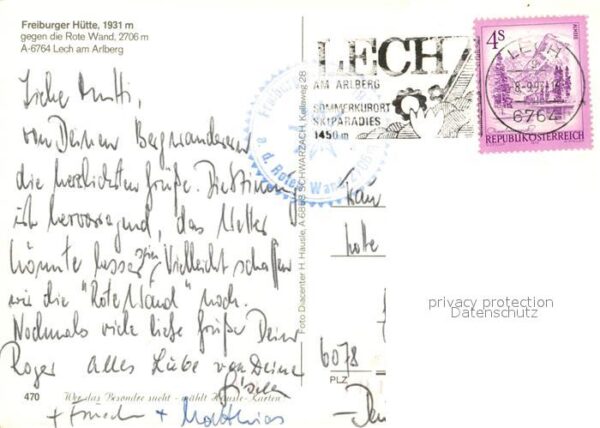 Freiburger Hütte, 1931 m
gegen die Rote Wand, 2706 m
A-6764 Lech am Arlberg
Liebe Mutti,
von Deinen Bergwanderern
die herzlichsten Grüße. Die Stimmung
ist hervorragend, das Wetter
könnte besser sein. Vielleicht schaffen
wir die "Rote Wand" noch.
Nochmals viele liebe Grüße Deine
Roger Alles Liebe von Deiner
Gisela
+ + Matthias
470 Wer das Besondere sucht - wählt Häusle-Karten
Foto Diacenter H. Häusle, A-6858 SCHWARZACH, Kellaweg 28
LECH
AM ARLBERG
SOMMERKURORT
SKIPARADIES
1450 m
Freiburger
d. Roten Wand 2706
4S
LECH
6764
REPUBLIK ÖSTERREICH
6078
PLZ
privacy protection
Datenschutz